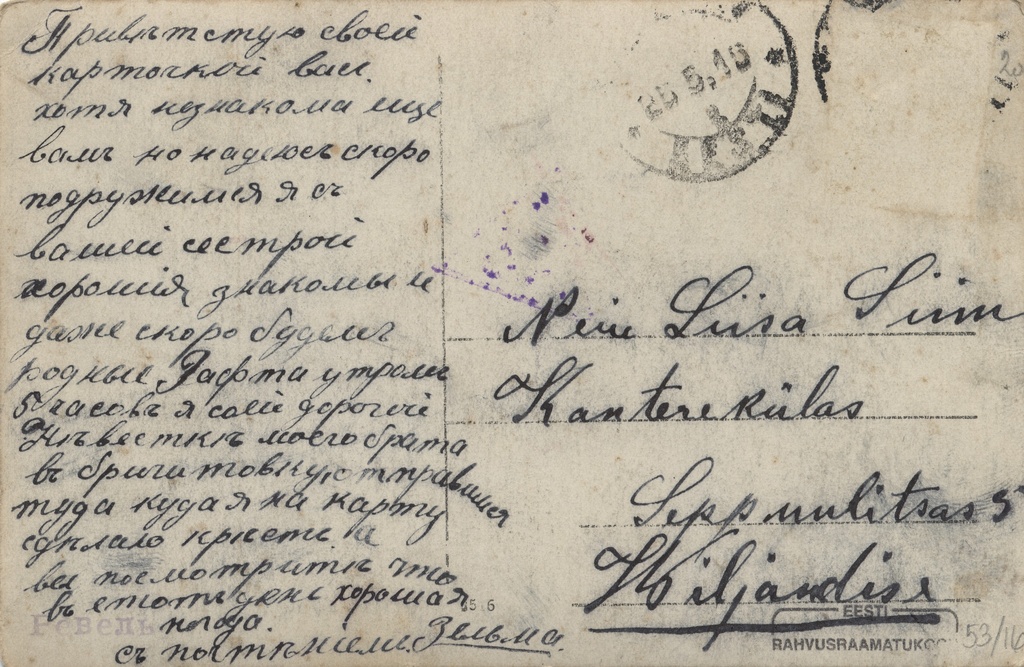 Привѣтстую своей
карточкой вас.
хотя незнакома еще
вамъ но надеюсь скоро
подружимся я съ
вашей сестрой
хорошия знакомы и
даже скоро будемъ
родные Зафтра утромъ
5 часовъ я соей дорогой
Нѣвесткѣ моего брата
въ бригитовку отправимся
туда куда я на карту
сдѣлаю крѣстъ и
вы посмотритѣ что
въ етотъ день хорошая
погода.
съ почтѣнием. Зельма.
EESTI
Liisa Siim
Kantreküllas
Sepp uulitsas 5
Wiljandise
Ревель
EESTI
RAHVUSRAAMATUKOGU
53/16